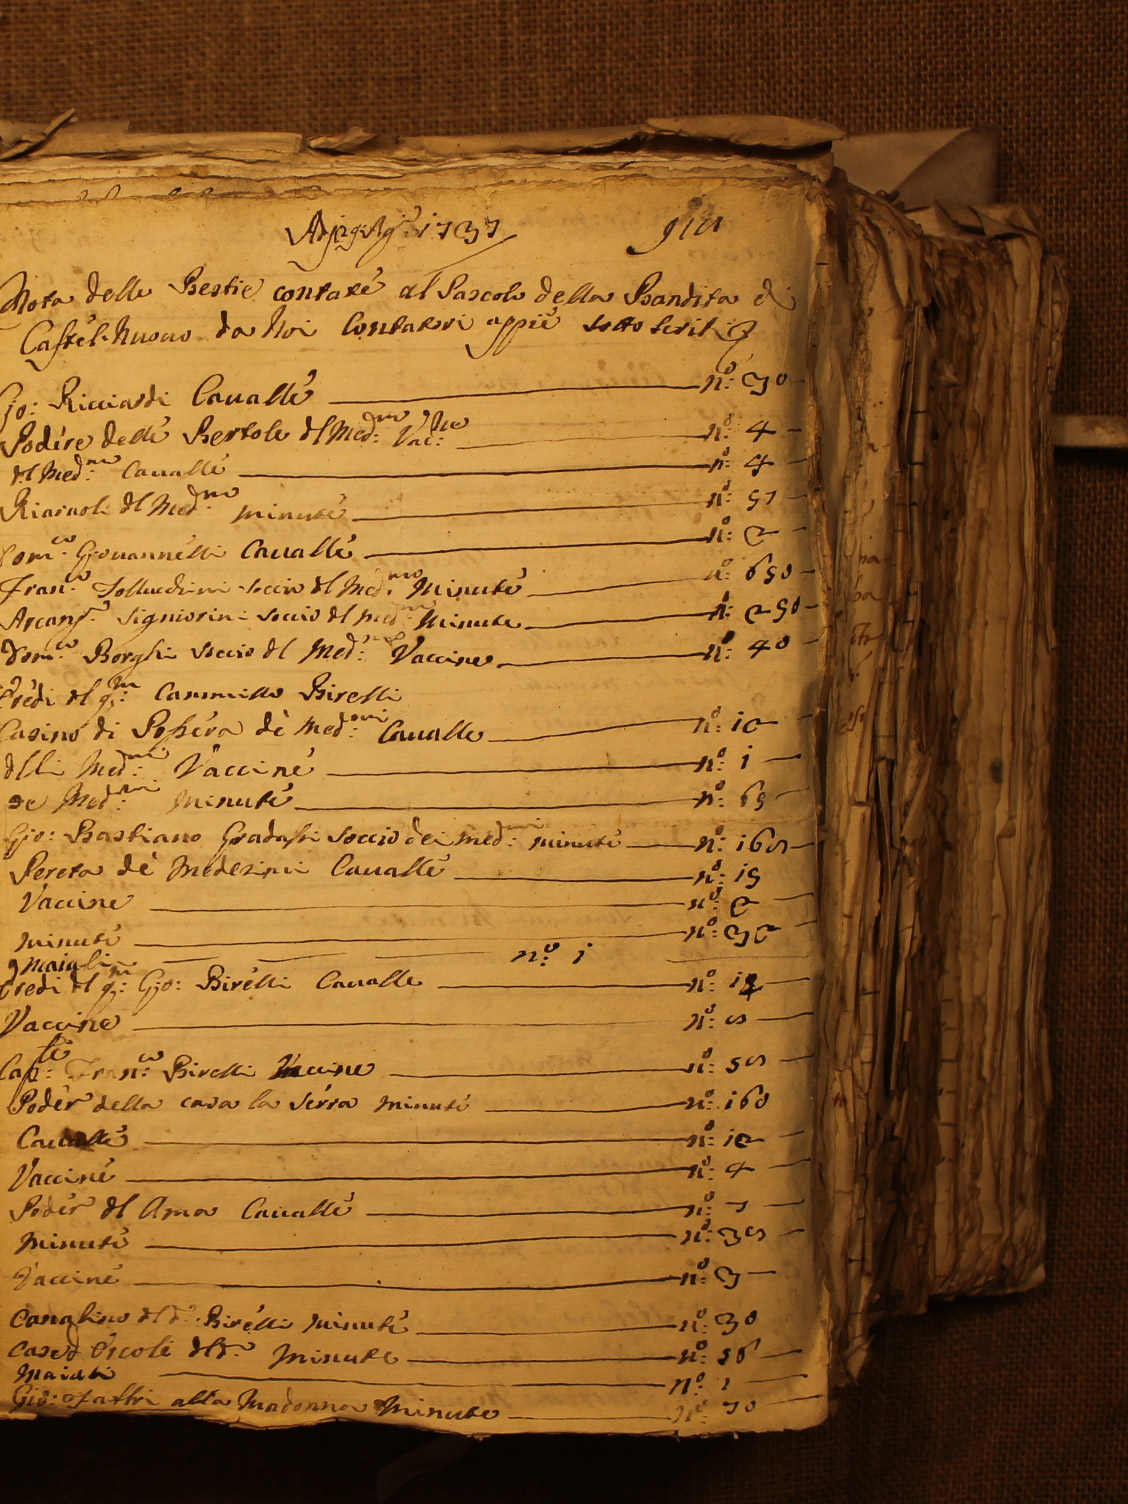 1737
Nota delle Bestie contate al Pascolo della Bandita di
Castel Nuovo da Noi Contatori appiè sotto scritti
Gio: Ricciardi Cavalle nº: 30
Podere delle Bertole del Med:mo Vac:ne nº: 4
del Med:mo Cavalle nº: 4
del Med:mo minute nº: 57
Dom:co Giovannelli Cavalle nº: 2
Fran:co soccio del Med:mo Minute nº: 650
Arcang:o Signiorini soccio del med:mo Minute nº: 250
Dom:co Borghi soccio del Med:mo Vaccine nº: 40
Eredi del q:m Cammillo Birelli
Casino di Pessera de Med:mi Cavalle nº: 12
delli Med:mi Vaccine nº: 1
de Med:mi Minute nº: 65
Gio: Bastiano Gradassi soccio dei med:mi minute nº: 165
Pereta de Medesimi Cavalle nº: 15
Vaccine nº: 2
minute nº: 32
maiali nº: 1
Eredi del q:m Gio: Birelli Cavalle nº:
Vaccine nº: 5
Cap: Fran:co Birelli Vaccine nº: 55
Poder della casa la Serra minute nº: 160
Cavalle nº: 12
Vaccine nº: 4
Poder del Ama Cavalle nº: 7
Minute nº: 35
Vaccine nº: 3
del d:o Birelli minute nº: 30
Case d'Ercole del d:o minute nº: 56
Maiali nº: 1
Gio: Fattri alla Madonna Minute nº: 70